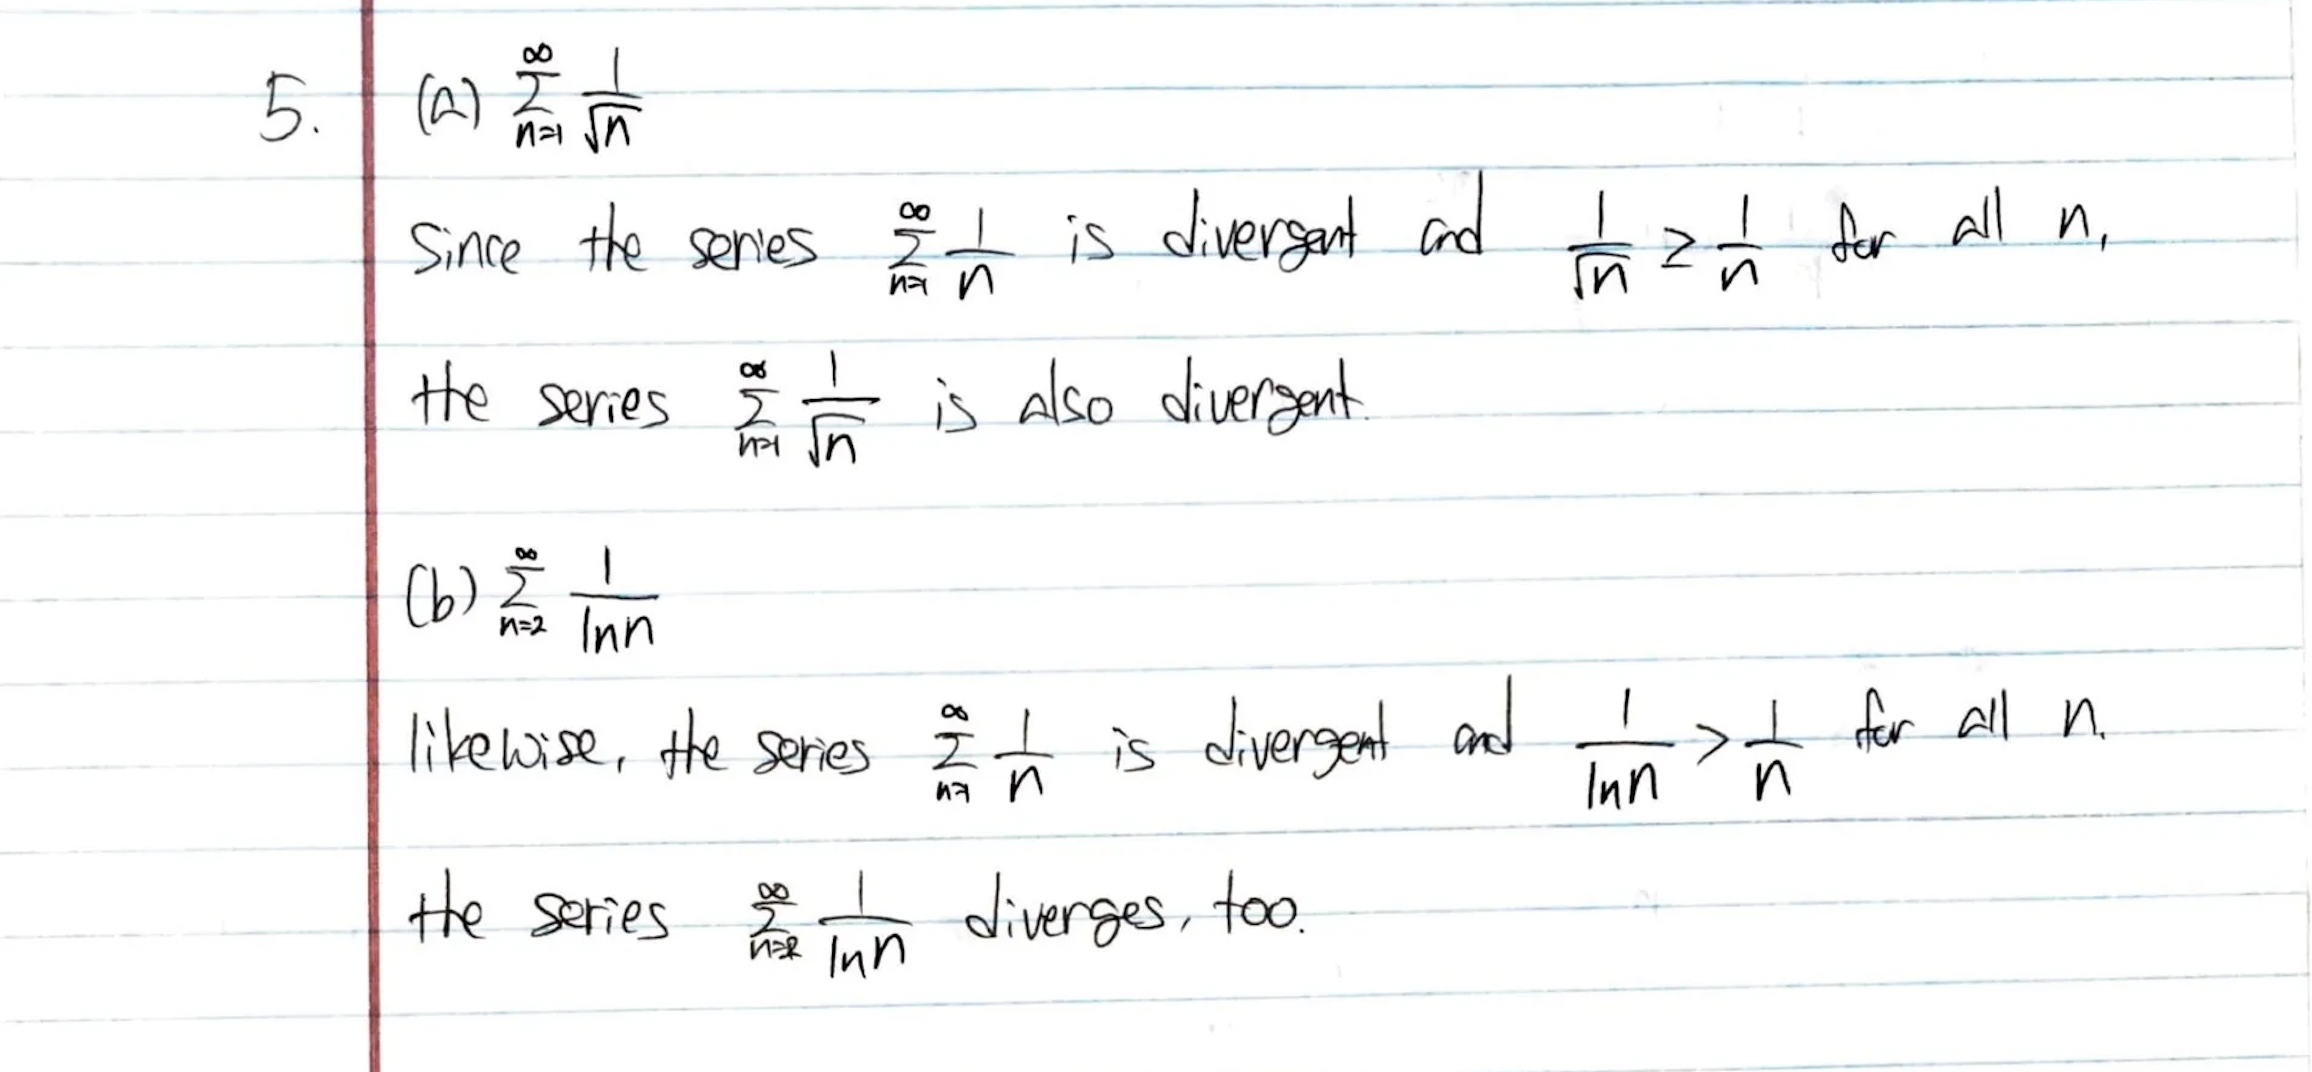 5. (a) $\sum_{n=1}^{\infty} \frac{1}{\sqrt{n}}$
Since the series $\sum_{n=1}^{\infty} \frac{1}{n}$ is divergent and $\frac{1}{\sqrt{n}} \geq \frac{1}{n}$ for all n,
the series $\sum_{n=1}^{\infty} \frac{1}{\sqrt{n}}$ is also divergent.
(b) $\sum_{n=2}^{\infty} \frac{1}{\ln n}$
likewise, the series $\sum_{n=1}^{\infty} \frac{1}{n}$ is divergent and $\frac{1}{\ln n} > \frac{1}{n}$ for all n.
the series $\sum_{n=2}^{\infty} \frac{1}{\ln n}$ diverges, too.